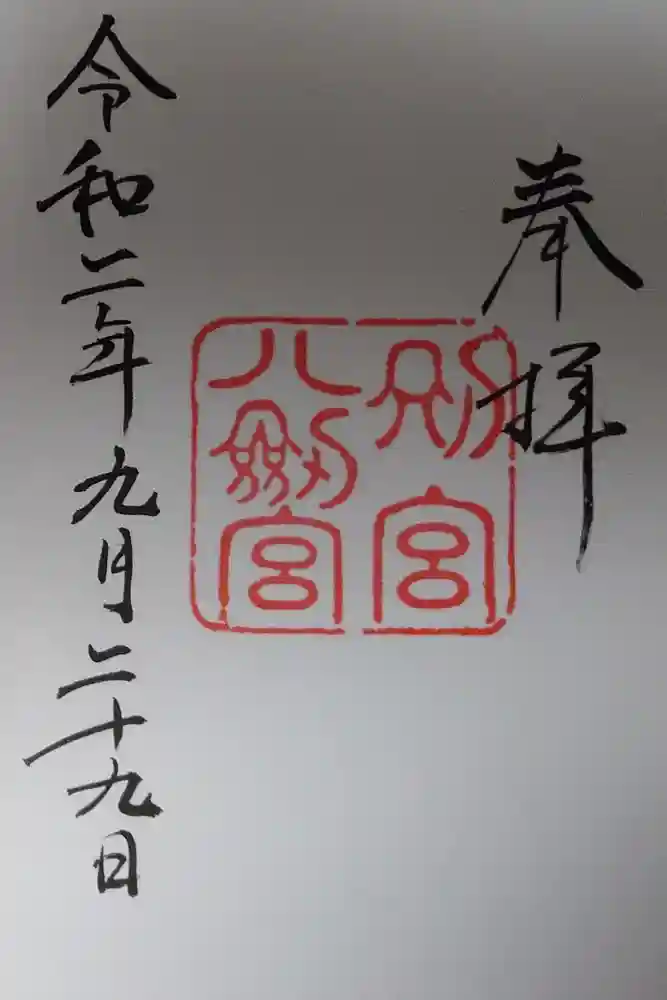 奉拝
別宮
八剱宮
令和二年九月二十九日